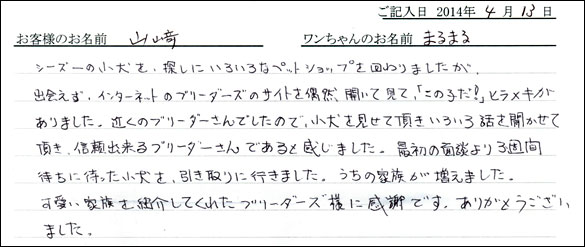 ご記入日 2014年 4 月 13 日
お客様のお名前 山﨑 ワンちゃんのお名前 まるまる
シーズーの小犬を、探しにいろいろなペットショップを回わりましたが、
出会えず、インターネットのブリーダーズのサイトを偶然、開いて見て、「この子だ!」とヒラメキが
ありました。近くのブリーダーさんでしたので、小犬を見せて頂きいろいろ話を聞かせて
頂き、信頼出来るブリーダーさんであると感じました。最初の面談より3週間
待ちに待った小犬を、引き取りに行きました。うちの家族が増えました。
可愛い家族を紹介してくれたブリーダーズ様に感謝です。ありがとうござい
ました。